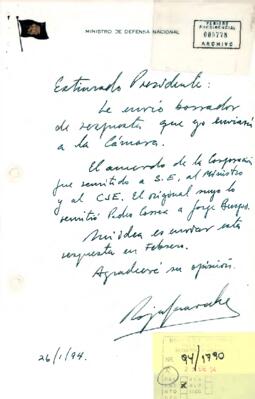 MINISTRO DE DEFENSA NACIONAL
PERIODO
PRESIDENCIAL
005778
ARCHIVO
Estimado Presidente:
Le envío borrador
de respuesta que yo enviaría
a la Cámara.
El acuerdo de la Corporación
fue remitido a S.E. al Ministro
y al CJE. El original suyo lo
remitió Pedro Correa a Jorge Burgos.
Mi idea es enviar esta
respuesta en Febrero.
Agradeceré su opinión.
26/1/94.
94/1790